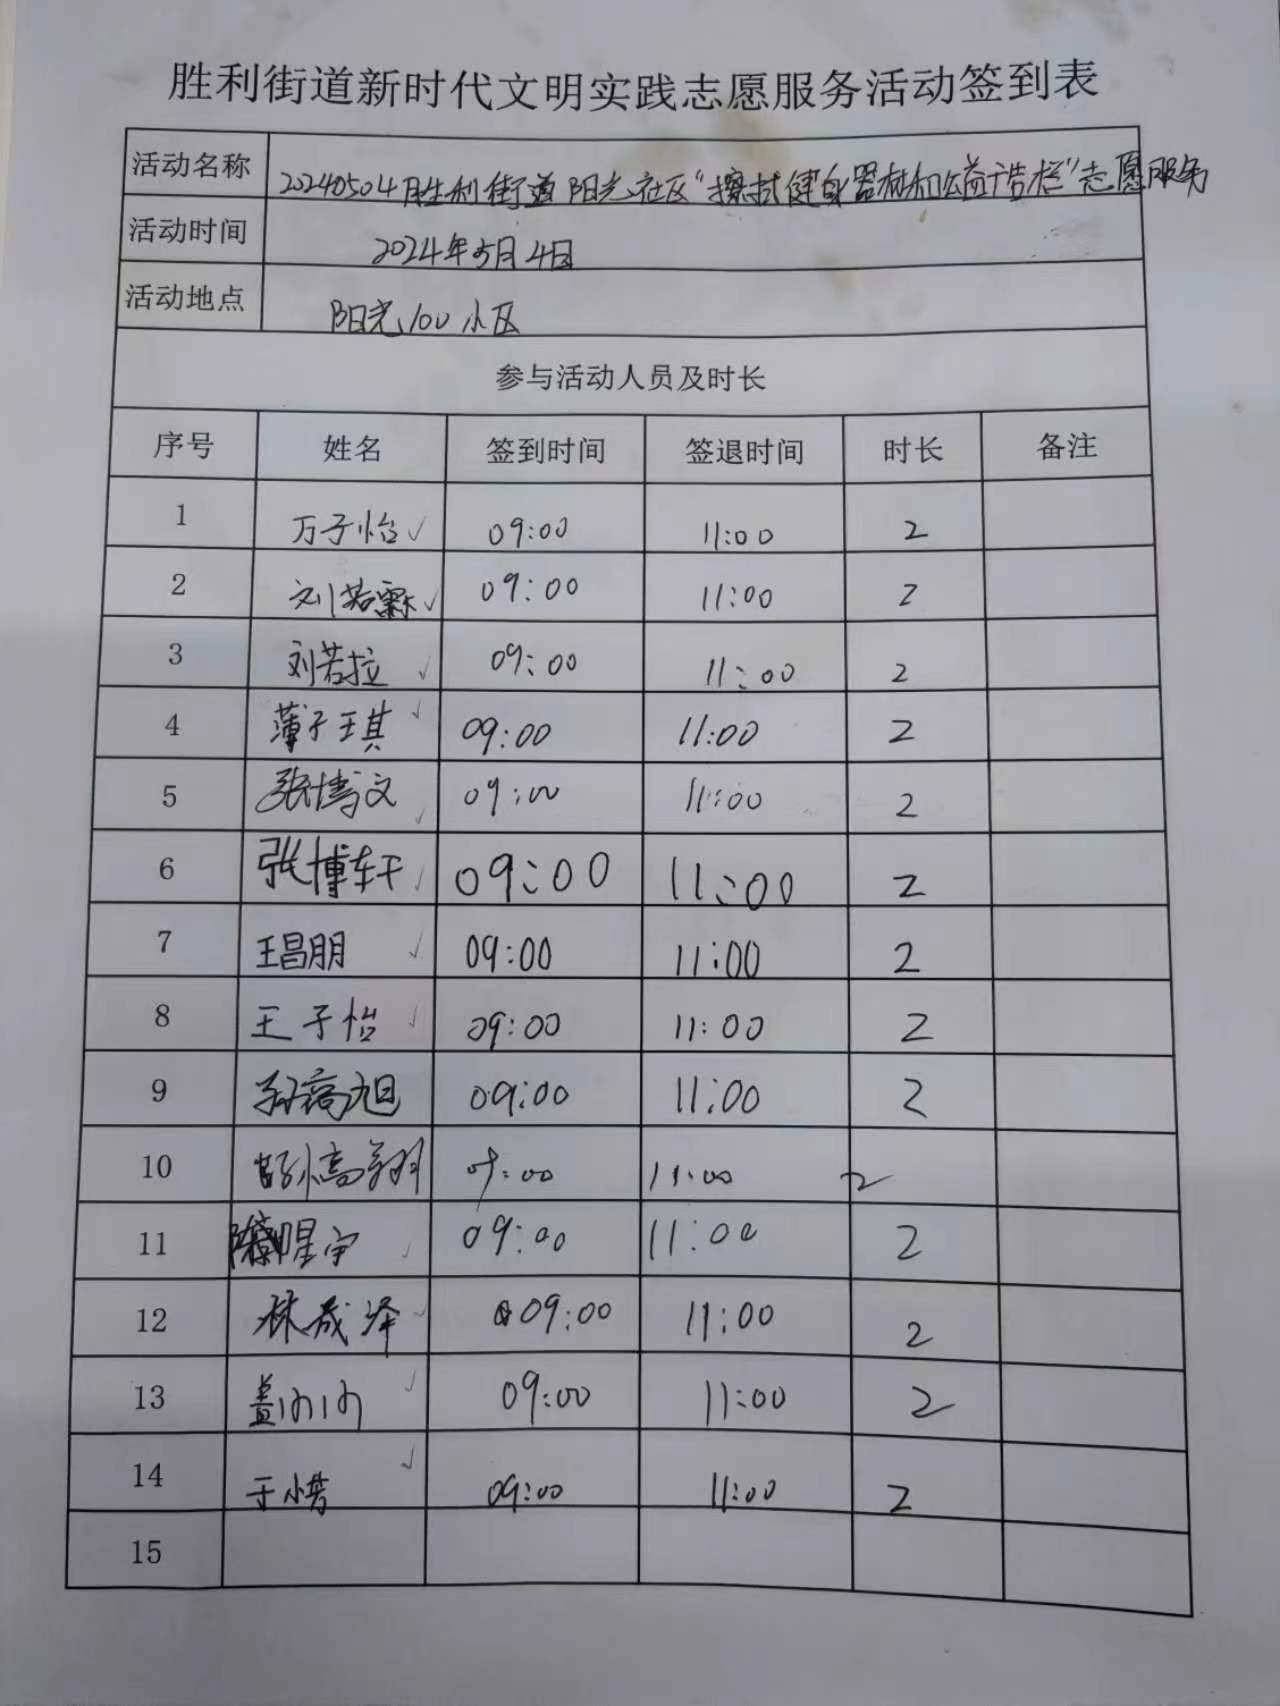 胜利街道新时代文明实践志愿服务活动签到表
活动名称 20240504胜利街道阳光社区“擦拭健身器材和公益广告栏”志愿服务
活动时间 2024年5月4日
活动地点 阳光100小区
参与活动人员及时长
序号 姓名 签到时间 签退时间 时长 备注
1 万子怡✓ 09:00 11:00 2
2 刘若霖✓ 09:00 11:00 2
3 刘若拉 ✓ 09:00 11:00 2
4 薄子琪 ✓ 09:00 11:00 2
5 张博文 ✓ 09:00 11:00 2
6 张博轩 ✓ 09:00 11:00 2
7 王昌朋 ✓ 09:00 11:00 2
8 王子怡 ✓ 09:00 11:00 2
9 孙高旭 09:00 11:00 2
10 孙高翔 09:00 11:00 2
11 陈星宇 ✓ 09:00 11:00 2
12 林成泽 09:00 11:00 2
13 盖 ✓ 09:00 11:00 2
14 于小芳 ✓ 09:00 11:00 2
15